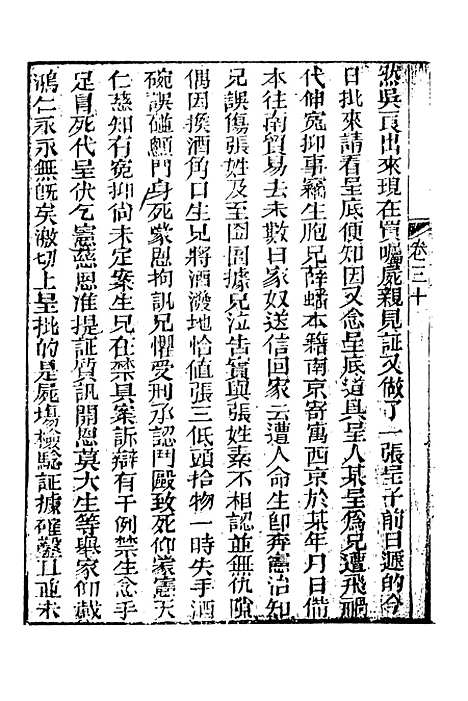 然吳良出來現在買囑屍親見証又做了一張呈子前日遞的今
日批來請看呈底便知因又念呈底道具呈人某呈爲兄遭飛禍
代伸冤抑事竊生胞兄薛蟠本籍南京寄寓西京於某年月日偹
本往南貿易去未數日家奴送信回家云遭人命生卽奔憲治知
兄誤傷張姓及至囹圄據兄泣告實與張姓素不相認並無仇隙
偶因換酒角口生兄將酒潑地恰值張三低頭拾物一時失手酒
碗誤碰顖門身死蒙恩拘訊兄懼受刑承認鬥毆致死仰蒙憲天
仁慈知有冤抑尙未定案生兄在禁具案訴辯有干例禁生念手
足冒死代呈伏乞憲慈恩准提証質訊開恩莫大生等舉家仰戴
鴻仁永永無旣矣激切上呈批的是屍塲檢驗証據確鑿且並未
卷三十